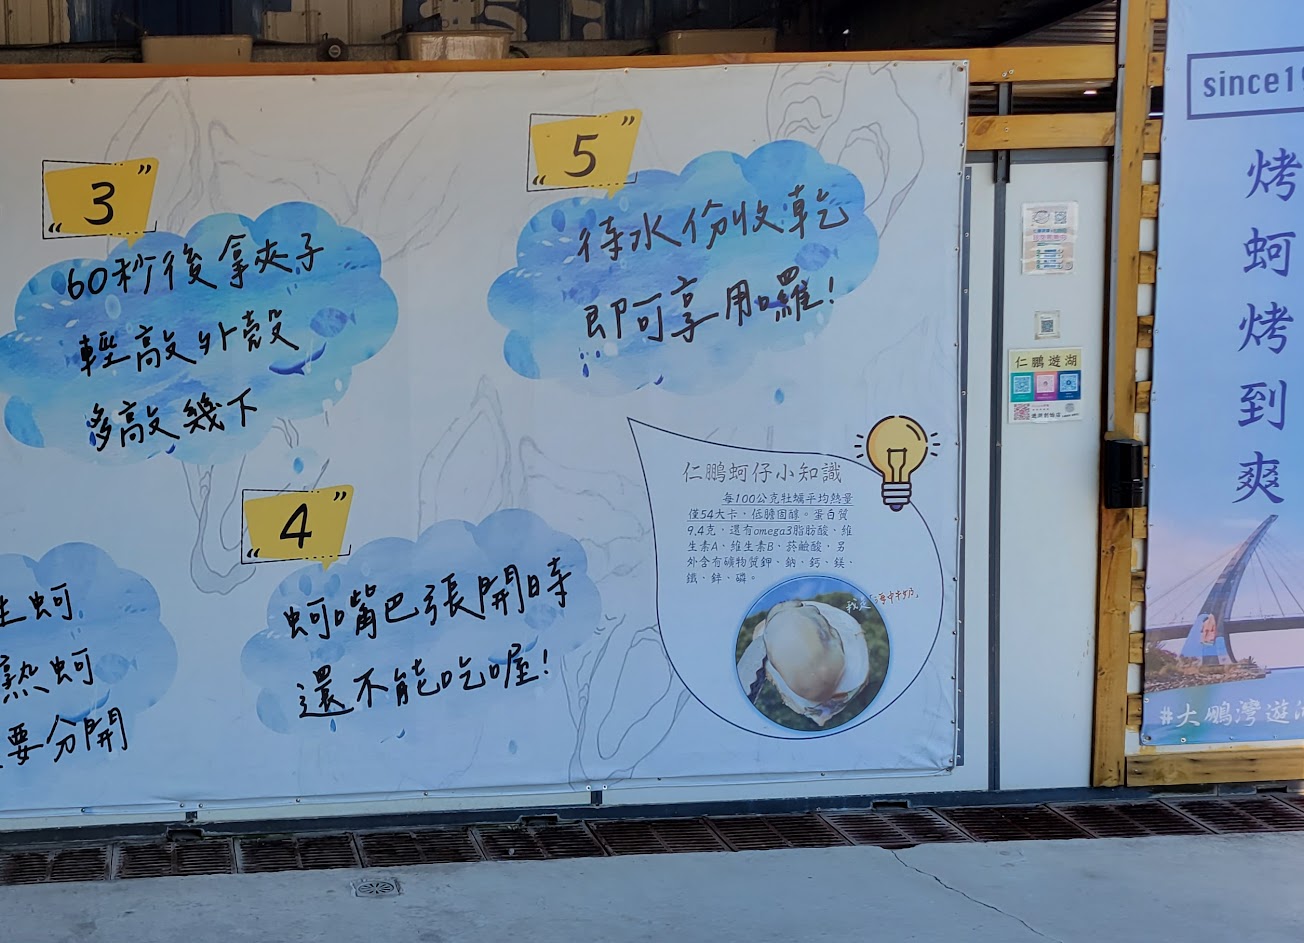 “3”
60秒後拿夾子
輕敲外殼
多敲幾下
“5”
待水份收乾
即可享用囉!
生蚵
熟蚵
要分開
“4”
蚵嘴巴張開時
還不能吃喔!
仁鵬蚵仔小知識
每100公克牡蠣平均熱量
僅54大卡、低膽固醇。蛋白質
9.4克，還有omega3脂肪酸、維
生素A、維生素B、菸鹼酸、另
外含有礦物質鉀、鈉、鈣、鎂、
鐵、鋅、磷。
我是「海中牛奶」
仁鵬遊湖
since19
烤蚵烤到爽
#大鵬灣遊湖